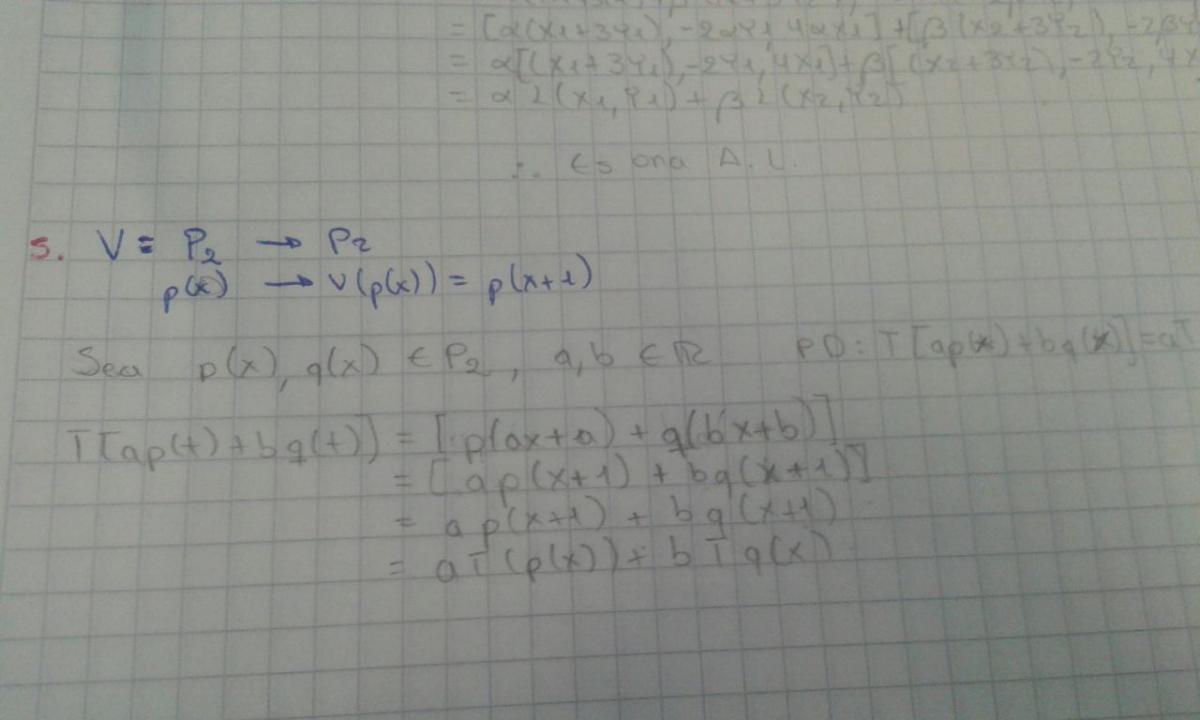 = [α(x1+3y1), -2αy1, 4αx1] + [β(x2+3y2), -2βy
= α[(x1+3y1), -2y1, 4x1] + β[(x2+3y2), -2y2, 4x
= α L(x1, y1) + β L(x2, y2)
∴ Es una A.L.
5. V = P2 → P2
p(x) → V(p(x)) = p(x+1)
Sea p(x), q(x) ∈ P2, a, b ∈ ℝ PD: T[ap(x)+bq(x)]=aT
T[ap(t)+bq(t)] = [p(ax+a) + q(bx+b)]
= [ap(x+1) + bq(x+1)]
= ap(x+1) + bq(x+1)
= aT(p(x)) + bTq(x)